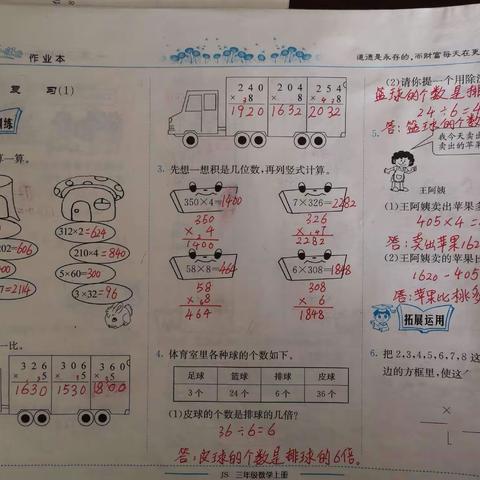 作业本
复 习(1)
训练
算一算。
202=606
7=2114
312×2=624
210×4=840
5×60=300
3×32=96
一比。
326
× 5
1630
306
× 5
1530
360
× 5
1800
240
× 8
1920
204
× 8
1632
254
× 8
2032
3. 先想一想积是几位数，再列竖式计算。
350×4=1400
350
× 4
1400
7×326=2282
326
× 7
2282
58×8=464
58
× 8
464
6×308=1848
308
× 6
1848
4. 体育室里各种球的个数如下。
足球 篮球 排球 皮球
3个 24个 6个 36个
(1)皮球的个数是排球的几倍?
36÷6=6
答:皮球的个数是排球的6倍。
JS 三年级数学上册
道德是永存的,而财富每天在更
(2)请你提一个用除法
篮球的个数是排
24÷6=4
答:篮球的个数
5.
我今天卖出
卖出的苹果
王阿姨
(1)王阿姨卖出苹果多
405×4=
答:卖出苹果162
(2)王阿姨卖的苹果比
1620-405
答:苹果比桃多
拓展运用
6. 把2,3,4,5,6,7,8这
边的方框里,使这
×